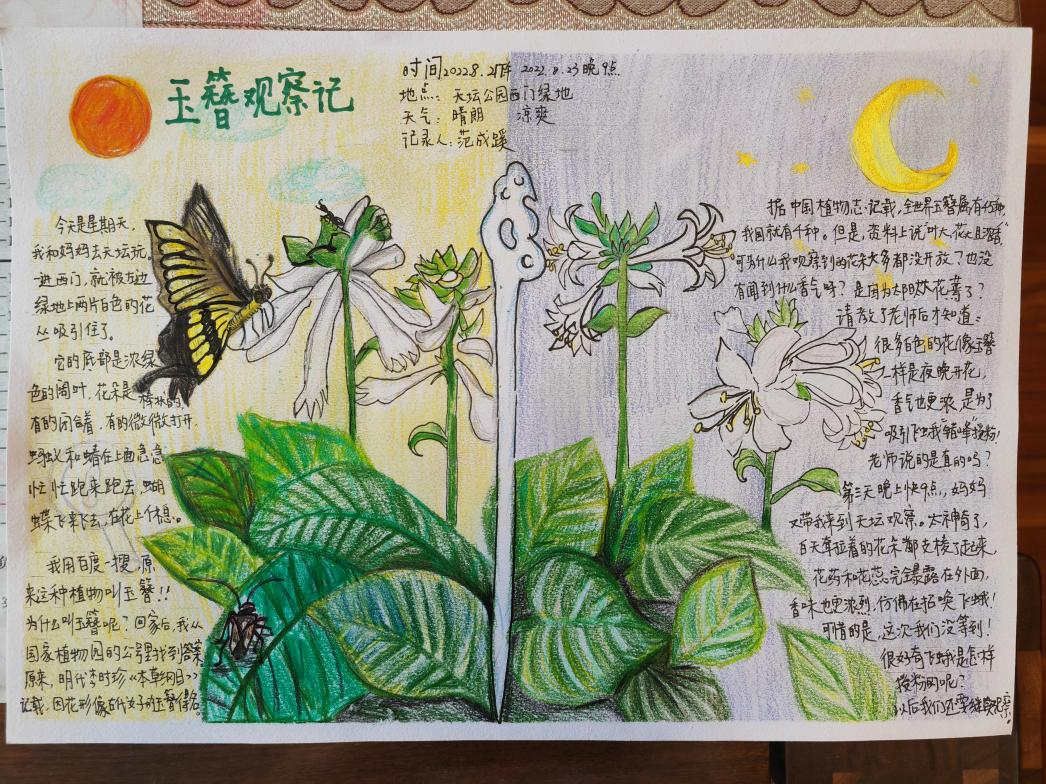 玉簪观察记
时间2022.8.21下午 2022.8.23晚9点
地点：天坛公园西门绿地
天气：晴朗 凉爽
记录人：范成蹊
今天是星期天，
我和妈妈去天坛玩。
进西门，就被左边
绿地上两片白色的花
丛吸引住了。
它的底部是浓绿
色的阔叶，花朵是棒状的，
有的闭合着，有的微微打开.
蚂蚁和蝽在上面急急
忙忙跑来跑去，蝴
蝶飞来飞去，在花上休息。
我用百度一搜，原
来这种植物叫玉簪!!
为什么叫玉簪呢？回家后，我从
国家植物园的公号里找到答案
原来，明代李时珍《本草纲目》
记载，因花形像古代女子的玉簪得名。
据中国植物志记载，全世界玉簪属有45种，
我国就有4种。但是，资料上说叶大、花大且浓香，
可为什么我观察到的花朵大多都没开放？也没
有闻到什么香气呀？是因为太阳太大花蔫了？
请教了老师后才知道：
很多白色的花像玉簪
一样是夜晚开花，
香气也更浓，是为了
吸引飞蛾我
老师说的是真的吗？
第三天晚上快9点，妈妈
又带我来到天坛观察。太神奇了，
白天耷拉着的花朵都支棱了起来，
花药和花蕊完全暴露在外面，
香味也更浓烈，仿佛在招唤飞蛾！
可惜的是，这次我们没等到！
很好奇飞蛾是怎样
授粉的呢？
以后我们还要继续观察！